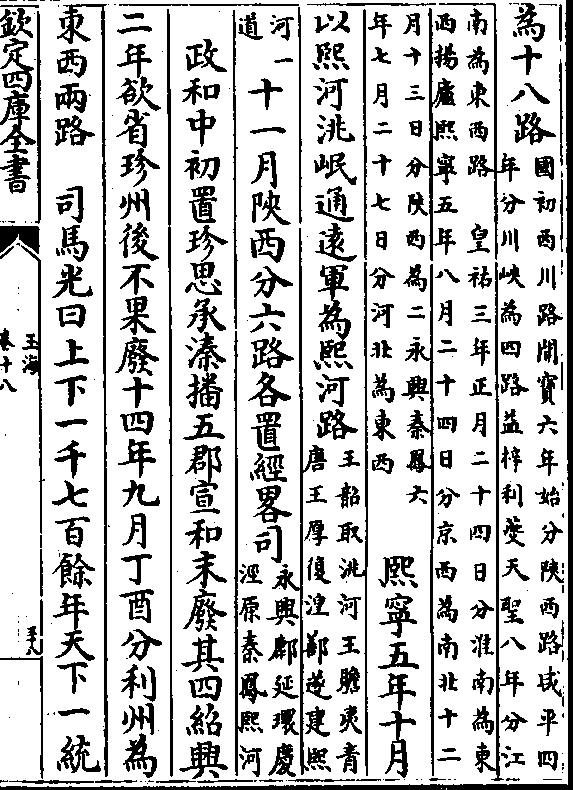 為十八路
國初西川路開寶六年始分陝西路咸平四
年分川峽為四路益梓利夔天聖八年分江
南為東西路 皇祐三年正月二十四日分淮南為東
西揚廬熙寧五年八月二十四日分京西為南北十二
月十三日分陝西為二永興秦鳳六
年七月二十七日分河北為東西
熙寧五年十月
以熙河洮岷通遠軍為熙河路
王韶取洮河王瞻夷青
唐王厚復湟鄯遂建熙
河一
道
十一月陝西分六路各置經畧司
永興鄜延環慶
涇原秦鳳熙河
政和中初置珍思承溱播五郡宣和末廢其四紹興
二年欲省珍州後不果廢十四年九月丁酉分利州為
東西兩路 司馬光曰上下一千七百餘年天下一統
欽定四庫全書
玉海
卷十八